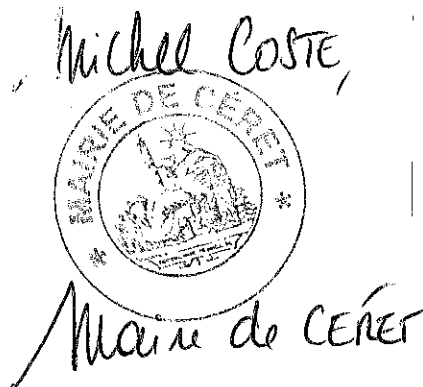 Michel COSTE,
MAIRIE DE CÉRET
Maire de CÉRET